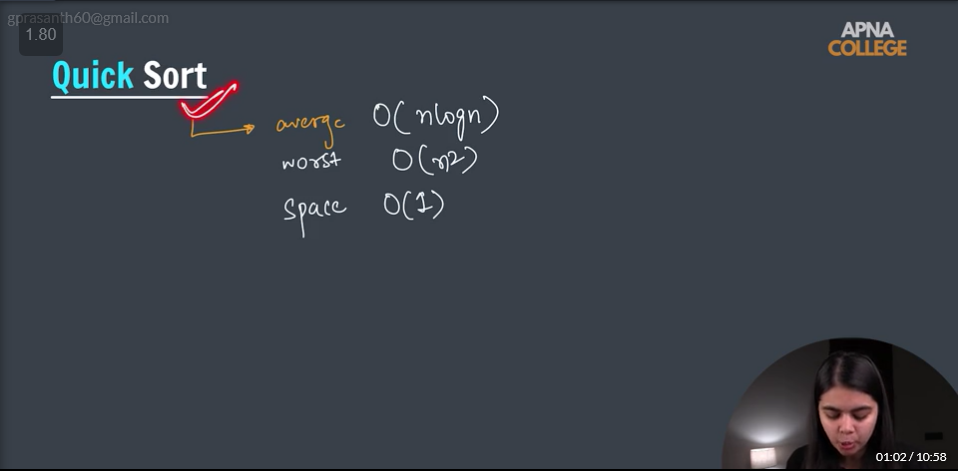 gprasanth60@gmail.com
1.80
APNA
COLLEGE
Quick Sort
average O(nlogn)
worst O(n2)
space O(1)
01:02 / 10:58